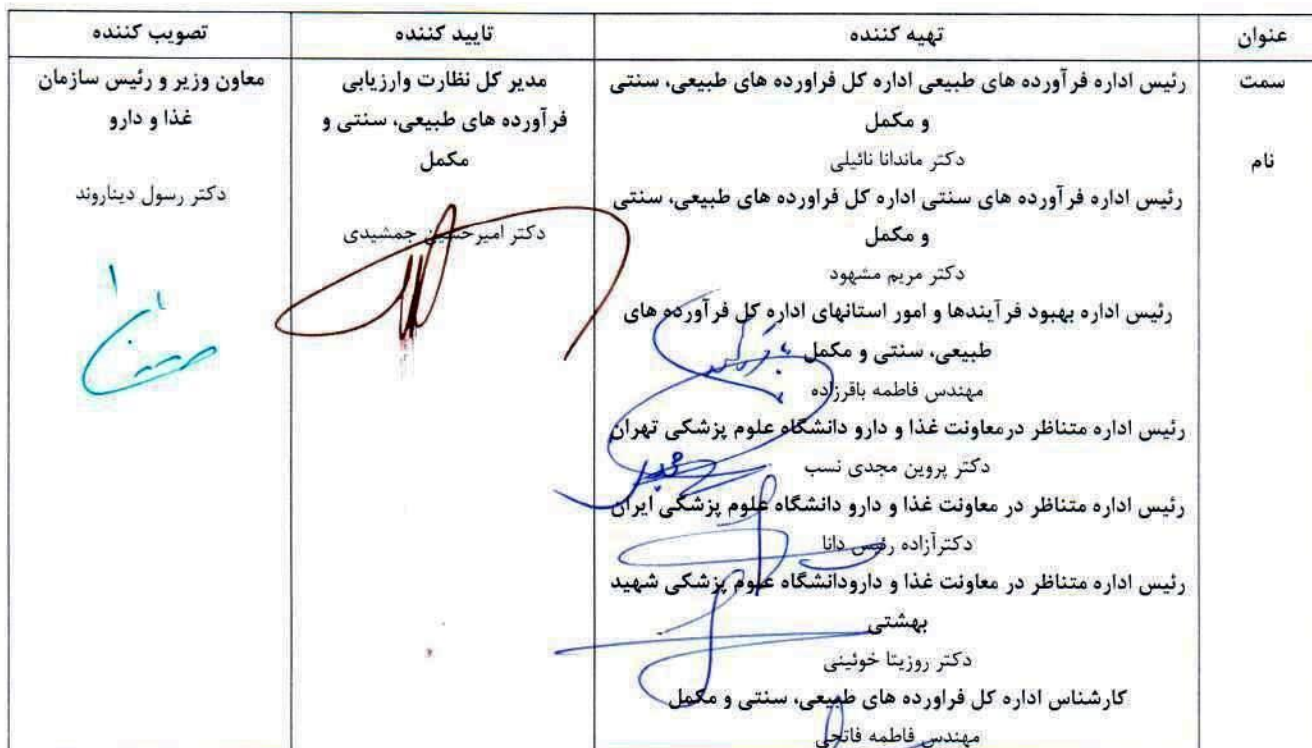 عنوان
تهیه کننده
تایید کننده
تصویب کننده
سمت
نام
رئیس اداره فرآورده های طبیعی اداره کل فراورده های طبیعی، سنتی
و مکمل
دکتر ماندانا نائیلی
رئیس اداره فرآورده های سنتی اداره کل فراورده های طبیعی، سنتی
و مکمل
دکتر مریم مشهود
رئیس اداره بهبود فرآیندها و امور استانهای اداره کل فرآورده های
طبیعی، سنتی و مکمل
مهندس فاطمه باقرزاده
رئیس اداره متناظر درمعاونت غذا و دارو دانشگاه علوم پزشکی تهران
دکتر پروین مجدی نسب
رئیس اداره متناظر در معاونت غذا و دارو دانشگاه علوم پزشکی ایران
دکترآزاده رئیس دانا
رئیس اداره متناظر در معاونت غذا و دارودانشگاه علوم پزشکی شهید
بهشتی
دکتر روزیتا خوئینی
کارشناس اداره کل فراورده های طبیعی، سنتی و مکمل
مهندس فاطمه فاتحی
مدیر کل نظارت وارزیابی
فرآورده های طبیعی، سنتی و
مکمل
دکتر امیرحسین جمشیدی
معاون وزیر و رئیس سازمان
غذا و دارو
دکتر رسول دیناروند